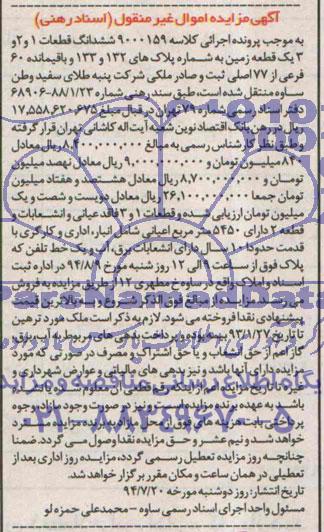 آگهی مزایده اموال غیر منقول (اسناد رهنی)
به موجب پرونده اجرائی کلاسه ۹۰۰۰۱۵۹ ششدانگ قطعات ۱ و ۲ و
۳ یک قطعه زمین به شماره پلاک های ۱۳۲ و ۱۳۳ و باقیمانده ۶۰
فرعی از ۷۷ اصلی ثبت و صادر ملکی شرکت پنبه طلای سفید وطن
ساوه منتقل شده است، طبق سند رهنی شماره ۸۸/۱/۲۳-۶۸۹۰۶
دفتر اسناد رسمی شماره ۷۹ تهران در قبال مبلغ ۱۷,۵۵۸,۶۲۰,۶۷۵
ریال در رهن بانک اقتصاد نوین شعبه آیت اله کاشانی تهران قرار گرفته
و طبق نظر کارشناس رسمی به مبالغ ۸,۴۰۰,۰۰۰,۰۰۰ ریال معادل
۸۴۰ میلیون تومان و ۹,۰۰۰,۰۰۰,۰۰۰ ریال معادل نهصد میلیون
تومان و ۸,۷۰۰,۰۰۰,۰۰۰ ریال معادل هشتصد و هفتاد میلیون
تومان جمعا ۲۶,۱۰۰,۰۰۰,۰۰۰ ریال معادل دویست و شصت و یک
میلیون تومان ارزیابی شده و قطعات ۱ و ۳ فاقد عیانی و انشعابات و
قطعه ۲ دارای ۵۴۵۰ متر مربع اعیانی شامل انبار، اداری و کارگری با
قدمت حدودا ۱۰ سال دارای انشعابات برق، آب و یک خط تلفن که
پلاک فوق از ساعت ۹ الی ۱۲ روز شنبه مورخ ۹۴/۸/۹ در اداره ثبت
اسناد و املاک واقع در ساوه خ مطهری ۱۲ از طریق مزایده به فروش
می رسد. مزایده از مبالغ فوق الذکر شروع و به بالاترین قیمت
پیشنهادی نقدا فروخته می شود. لازم به ذکر است ملک مورد ترهین
تا تاریخ ۹۳/۱/۲۷ بیمه بوده و پرداخت بدهی های مربوط به آب، برق و
گاز اعم از حق انشعاب و یا حق اشتراک و مصرف در صورتی که مورد
مزایده دارای آنها باشد و نیز بدهی های مالیاتی و عوارض شهرداری و
غیره تا تاریخ مزایده اعم از اینکه رقم قطعی آن معلوم شده یا نشده
باشد به عهده برنده مزایده است و نیز در صورت وجود مازاد وجوه
پرداختی بابت هزینه های فوق از محل مازاد به برنده مزایده مسترد
خواهد شد و نیم عشر و حق مزایده نقدا وصول می گردد. ضمنا
چنانچه روز مزایده تعطیل رسمی گردد، مزایده روز اداری بعد از
تعطیلی در همان ساعت و مکان مقرر برگزار خواهد شد.
تاریخ انتشار: روز دوشنبه مورخه ۹۴/۷/۲۰
مسئول واحد اجرای اسناد رسمی ساوه – محمدعلی حمزه لو
پایگاه اطلاع رسانی مناقصه و مزایده
۰۲۱-۸۸۳۴۹۶۷۰-۵